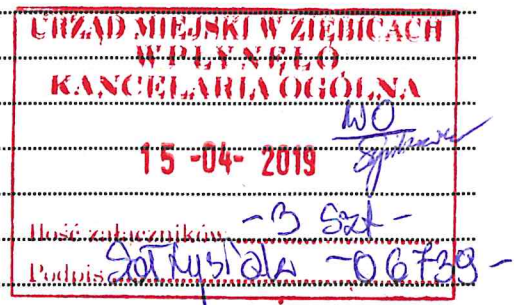 URZĄD MIEJSKI W ZIĘBICACH
WPŁYNĘŁO
KANCELARIA OGÓLNA
WO
15 -04- 2019
Ilość załączników -3 szt-
Podpis -06739-